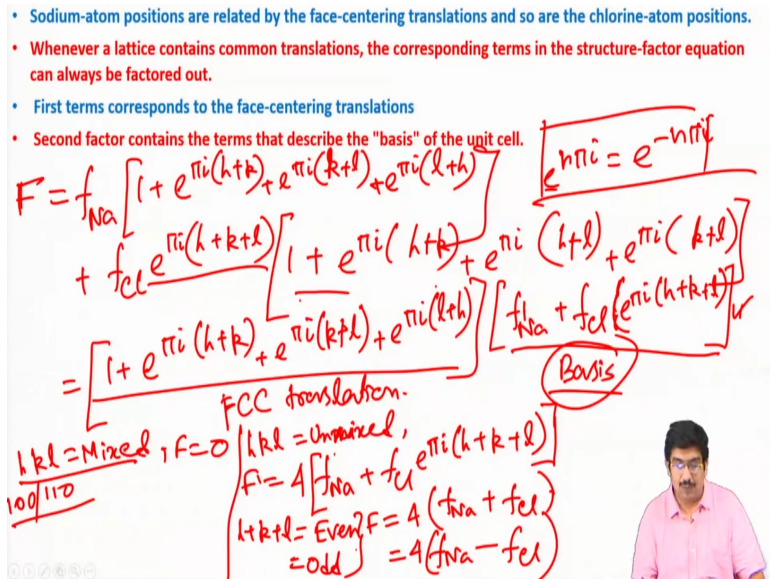 • Sodium-atom positions are related by the face-centering translations and so are the chlorine-atom positions.
• Whenever a lattice contains common translations, the corresponding terms in the structure-factor equation
can always be factored out.
• First terms corresponds to the face-centering translations
• Second factor contains the terms that describe the "basis" of the unit cell.
e^{nπi} = e^{-nπi}
F = f_{Na} [1 + e^{πi(h+k)} + e^{πi(k+l)} + e^{πi(l+h)}]
+ f_{Cl} e^{πi(h+k+l)} [1 + e^{πi(h+k)} + e^{πi(h+l)} + e^{πi(k+l)}]
= [1 + e^{πi(h+k)} + e^{πi(k+l)} + e^{πi(l+h)}] [f_{Na} + f_{Cl} {e^{πi(h+k+l)}]
FCC translation.
Basis
hkl = Mixed, F = 0
100/110
hkl = Unmixed,
F = 4 [f_{Na} + f_{Cl} e^{πi(h+k+l)}]
h+k+l = Even} F = 4 (f_{Na} + f_{Cl})
= odd} = 4 (f_{Na} - f_{Cl})